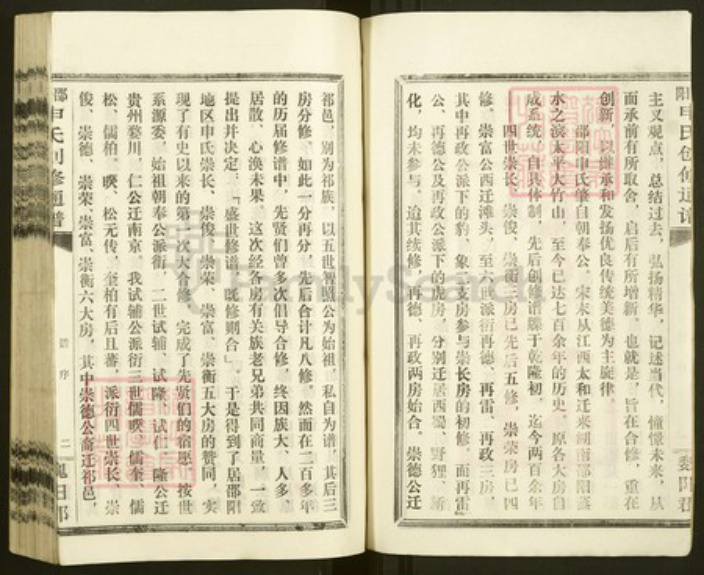 主义观点，总结过去，弘扬精华，记述当代，憧憬未来，从
而承前有所取舍，启后有所增新。也就是，旨在合修，重在
创新，以继承和发扬优良传统美德为主旋律。
邵阳申氏肇自朝奉公，宋末从江西太和迁来湖南邵阳
水之滨太平大竹山，至今已达七百余年的历史。原各大房自
成系统，自具体制，先后创谱牒于乾隆初，迄今两百余年
四世崇长、崇俊、崇衡三房已先后五修，崇荣房已四
修。崇富公西迁滩头，至六世派衍再德、再雷、再政三房，
其中再政公派下的豹、象二支房参与崇长房的初修。而再雷
公、再德公及再政公派下的虎房，分别迁居西蜀、野狸、新
化，均未参与。逾其续修，再德、再政两房始合。崇德公迁
祁邑，别为祁族，以五世智照公为始祖，私自为谱，其后三
房分修。如此一分再分，先后合计凡八修。然而在二百多年
的历届修谱中，先贤们曾多次倡导合修，终因族大、人多、
居散、心涣未果。这次经各房有关族老兄弟共同商量，一致
提出并决定：「盛世修谱，既修则合」。于是得到了居邵阳
地区申氏崇长、崇俊、崇荣、崇富、崇衡五大房的赞同，实
现了有史以来的第一次大合修，完成了先贤们的宿愿。按世
系源委，始祖朝奉公派衍，二世试辅、试隆、试仁。隆公迁
贵州婺川，仁公迁南京，我试辅公派衍三世儒暌、儒奎、儒
松、儒柏。暌、松元传，奎柏有后且蕃，派衍四世崇长、崇
俊、崇德、崇荣、崇富、崇衡六大房，其中崇德公裔迁祁邑，
邵
申氏创修通谱
谱序
二
阳申氏创修通谱
魏阳郡